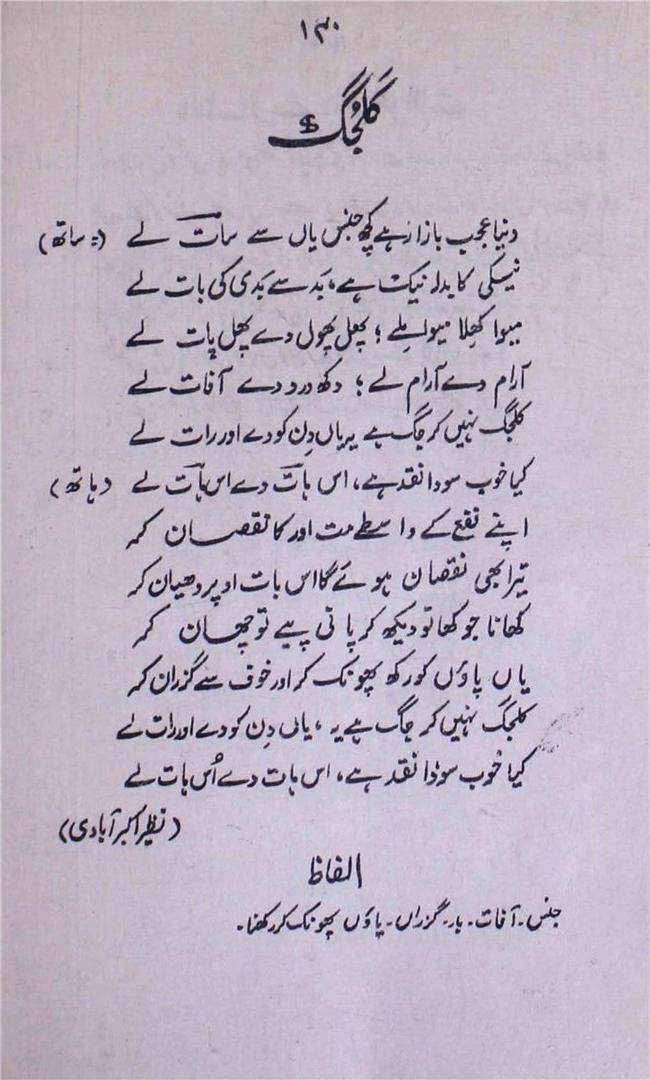 ۱۳۰
کلجگ
دنیا عجب بازار ہے کچھ جنس یاں سے سات لے (= ساتھ)
نیکی کا بدلہ نیک ہے، بد سے بدی کی بات لے
میوا کھلا میوا ملے؛ پھل پھول دے پھل پات لے
آرام دے آرام لے؛ دکھ درد دے آفات لے
کلجگ نہیں کرجگ ہے یہ یاں دن کو دے اور رات لے
کیا خوب سودا نقد ہے، اس ہات دے اس ہات لے (ہاتھ)
اپنے نفع کے واسطے مت اور کا نقصان کر
تیرا بھی نقصان ہوئے گا اس بات اوپر دھیان کر
کھانا جو کھا تو دیکھ کر پانی پیے تو چھان کر
یاں پاؤں کو رکھ پھونک کر اور خوف سے گزران کر
کلجگ نہیں کرجگ ہے یہ، یاں دن کو دے اور رات لے
کیا خوب سودا نقد ہے، اس ہات دے اُس ہات لے
(نظیر اکبر آبادی)
الفاظ
جنس۔ آفات۔ بار۔ گزراں۔ پاؤں پھونک کر رکھنا۔